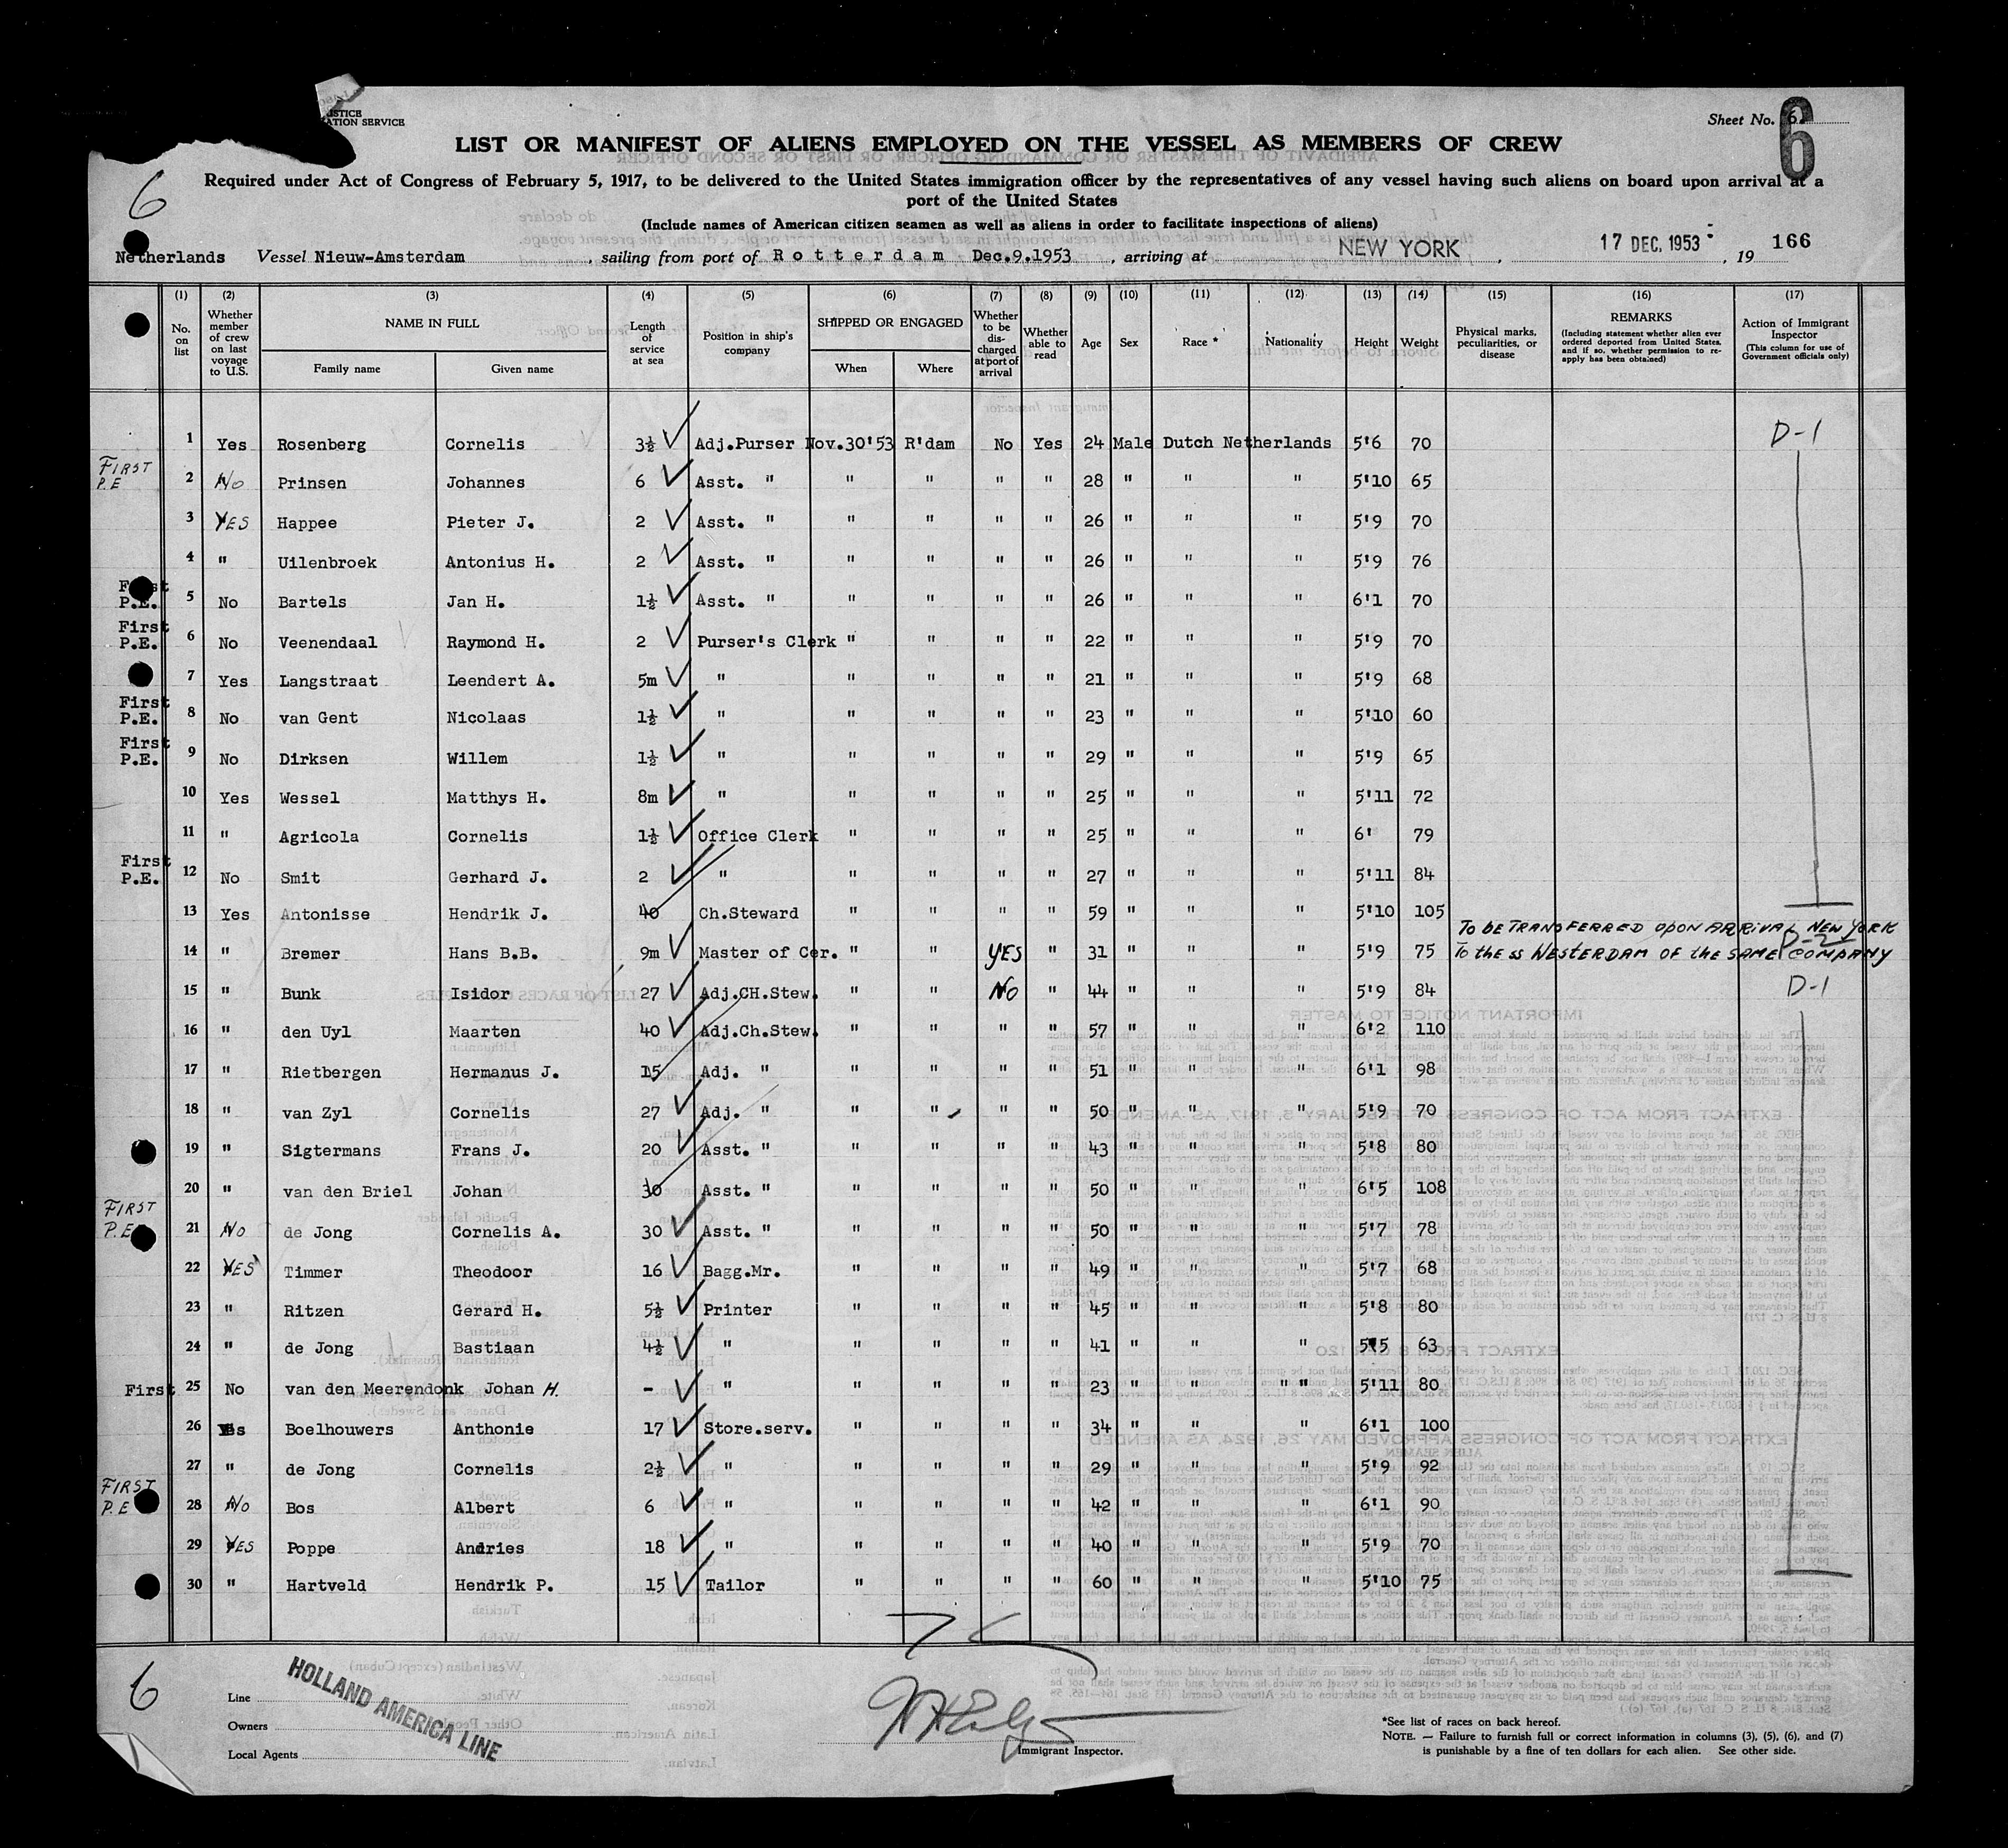 USTICE
ATION SERVICE
Sheet No. 6.
6
LIST OR MANIFEST OF ALIENS EMPLOYED ON THE VESSEL AS MEMBERS OF CREW
Required under Act of Congress of February 5, 1917, to be delivered to the United States immigration officer by the representatives of any vessel having such aliens on board upon arrival at a
port of the United States
6
(Include names of American citizen seamen as well as aliens in order to facilitate inspections of aliens)
Netherlands Vessel Nieuw-Amsterdam, sailing from port of Rotterdam Dec.9.1953, arriving at NEW YORK, 17 DEC. 1953, 19 166
(1) (2) (3) (4) (5) (6) (7) (8) (9) (10) (11) (12) (13) (14) (15) (16) (17)
No. on list
Whether member of crew on last voyage to U.S.
NAME IN FULL
Family name Given name
Length of service at sea
Position in ship's company
SHIPPED OR ENGAGED
When Where
Whether to be discharged at port of arrival
Whether able to read
Age
Sex
Race *
Nationality
Height
Weight
Physical marks, peculiarities, or disease
REMARKS
(Including statement whether alien ever ordered deported from United States, and if so, whether permission to re-apply has been obtained)
Action of Immigrant Inspector
(This column for use of Government officials only)
1 Yes Rosenberg Cornelis 3½ Adj.Purser Nov.30'53 R'dam No Yes 24 Male Dutch Netherlands 5'6 70 D-1
FIRST P.E 2 No Prinsen Johannes 6 Asst. " " " " " 28 " " " 5'10 65
3 YES Happee Pieter J. 2 Asst. " " " " " 26 " " " 5'9 70
4 " Uilenbroek Antonius H. 2 Asst. " " " " " 26 " " " 5'9 76
First P.E. 5 No Bartels Jan H. 1½ Asst. " " " " " 26 " " " 6'1 70
First P.E. 6 No Veenendaal Raymond H. 2 Purser's Clerk " " " " 22 " " " 5'9 70
7 Yes Langstraat Leendert A. 5m " " " " " 21 " " " 5'9 68
First P.E. 8 No van Gent Nicolaas 1½ " " " " " 23 " " " 5'10 60
First P.E. 9 No Dirksen Willem 1½ " " " " " 29 " " " 5'9 65
10 Yes Wessel Matthys H. 8m " " " " " 25 " " " 5'11 72
11 " Agricola Cornelis 1½ Office Clerk " " " " 25 " " " 6' 79
First P.E. 12 No Smit Gerhard J. 2 " " " " " 27 " " " 5'11 84
13 Yes Antonisse Hendrik J. 40 Ch.Steward " " " " 59 " " " 5'10 105
To be TRANSFERRED UPON ARRIVAL NEW YORK
14 " Bremer Hans B.B. 9m Master of Cer. " " YES " 31 " " " 5'9 75 To the ss WESTERDAM OF the SAME COMPANY D-2
15 " Bunk Isidor 27 Adj.CH.Stew. " " No " 44 " " " 5'9 84 D-1
16 " den Uyl Maarten 40 Adj.Ch.Stew. " " " " 57 " " " 6'2 110
17 " Rietbergen Hermanus J. 15 Adj. " " " " " 51 " " " 6'1 98
18 " van Zyl Cornelis 27 Adj. " " " " " 50 " " " 5'9 70
19 " Sigtermans Frans J. 20 Asst. " " " " " 43 " " " 5'8 80
20 " van den Briel Johan 30 Asst. " " " " " 50 " " " 6'5 108
FIRST P.E 21 No de Jong Cornelis A. 30 Asst. " " " " " 50 " " " 5'7 78
22 YES Timmer Theodoor 16 Bagg.Mr. " " " " 49 " " " 5'7 68
23 " Ritzen Gerard H. 5½ Printer " " " " 45 " " " 5'8 80
24 " de Jong Bastiaan 4½ " " " " " 41 " " " 5'5 63
First 25 No van den Meerendonk Johan H. - " " " " " 23 " " " " 5'11 80
26 Yes Boelhouwers Anthonie 17 Store.serv. " " " " 34 " " " 6'1 100
27 " de Jong Cornelis 2½ " " " " " 29 " " " 5'9 92
FIRST P.E 28 No Bos Albert 6 " " " " " 42 " " " 6'1 90
29 YES Poppe Andries 18 " " " " " 40 " " " 5'9 70
30 " Hartveld Hendrik P. 15 Tailor " " " " 60 " " " 5'10 75
6
Line
Owners
Local Agents
HOLLAND AMERICA LINE
Immigrant Inspector.
*See list of races on back hereof.
NOTE. — Failure to furnish full or correct information in columns (3), (5), (6), and (7)
is punishable by a fine of ten dollars for each alien. See other side.